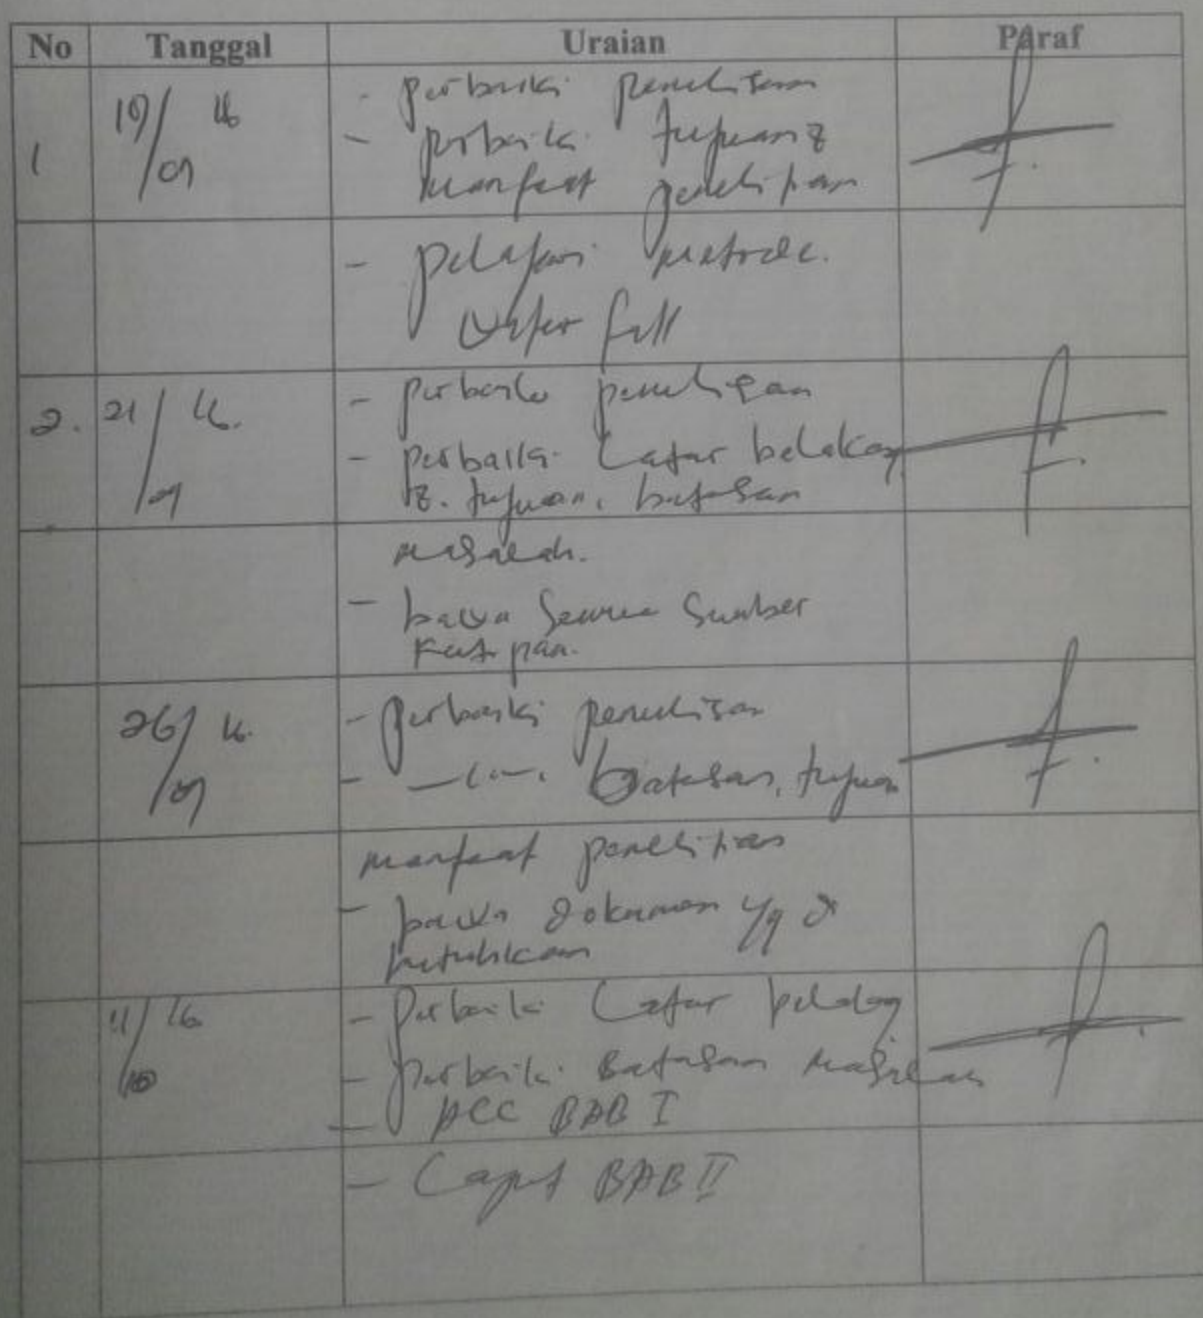 No Tanggal Uraian Paraf
1 19/09 16 - perbaiki penulisan
- perbaiki tujuan &
manfaat penelitian
- pelajari metode
water fall
2. 21/09 16. - perbaiki penulisan
- perbaiki latar belakang
tujuan, batasan
masalah.
- bawa semua sumber
kutipan.
26/09 16. - perbaiki penulisan
- batasan, tujuan
manfaat penelitian
- bawa dokumen yg di
butuhkan
11/10 16 - perbaiki latar belakang
- perbaiki Batasan masalah
- ACC BAB I
- Lanjut BAB II